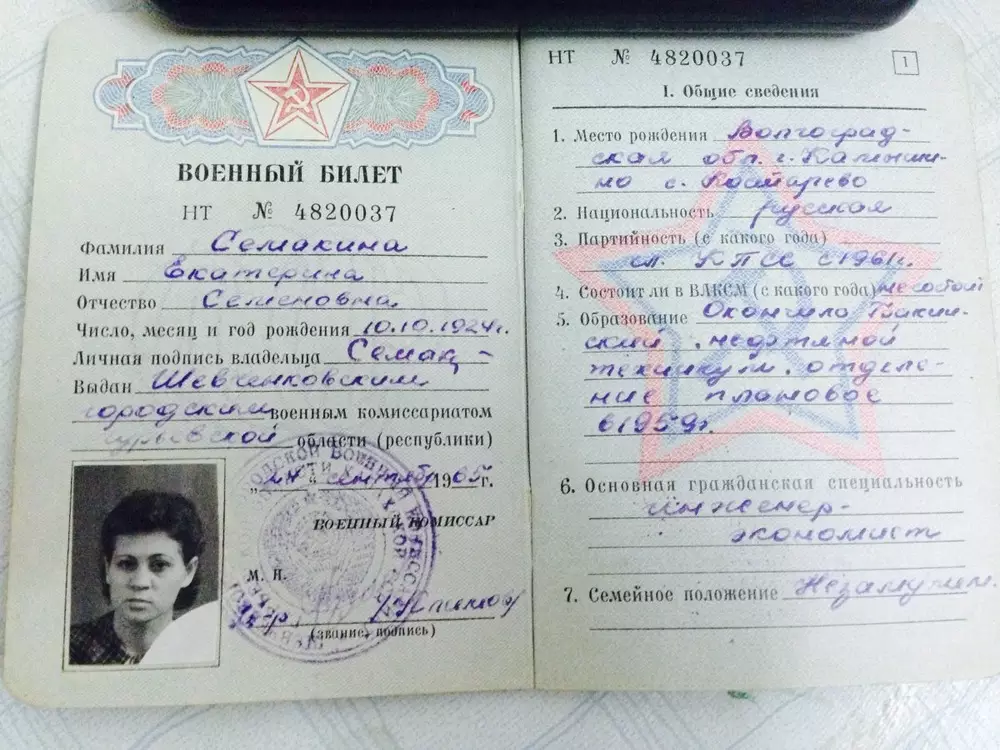 ВОЕННЫЙ БИЛЕТ
НТ № 4820037
Фамилия Семакина
Имя Екатерина
Отчество Семеновна
Число, месяц и год рождения 10.10.1924г.
Личная подпись владельца Семак
Выдан Шевченковским
городским военным комиссариатом
Гурьевской области (республики)
„24" сентября 1965г.
ВОЕННЫЙ КОМИССАР
М. П.
(звание, подпись)
НТ № 4820037
1
I. Общие сведения
1. Место рождения Волгоград-
ская обл. г. Камыши-
но с.
2. Национальность русская
3. Партийность (с какого года)
чл. КПСС с 1961г.
4. Состоит ли в ВЛКСМ (с какого года) не состоит
5. Образование Окончила Бакин-
ский нефтяной
техникум. отделе-
ние плановое
в 1959г.
6. Основная гражданская специальность
инженер-
экономист
7. Семейное положение Незамужем.